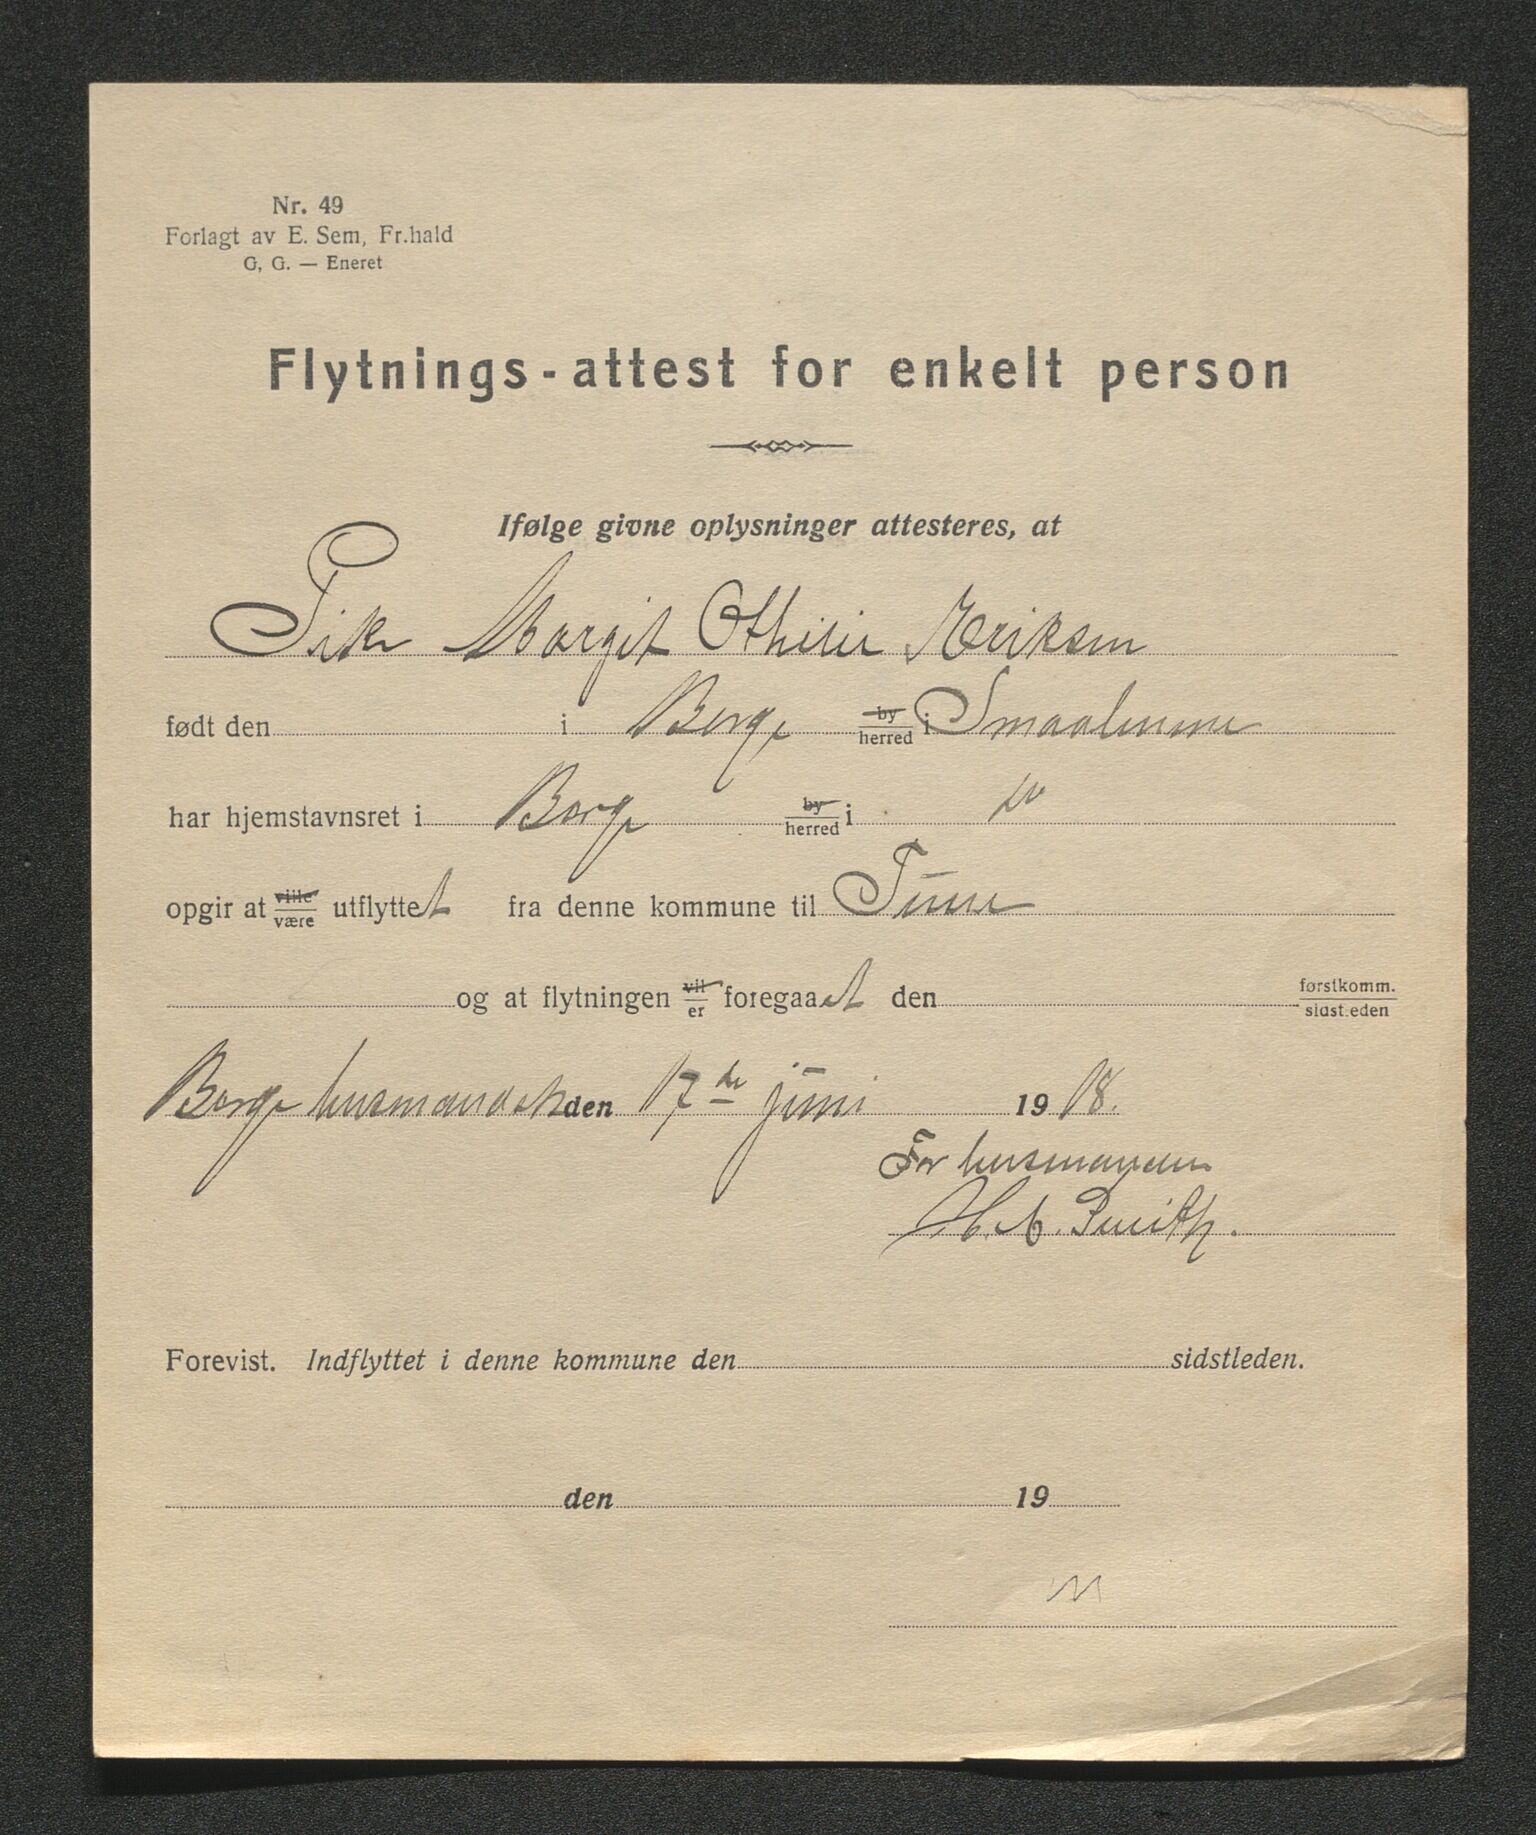 Nr. 49
Forlagt av E. Sem, Fr.hald
G, G. — Eneret
Flytnings-attest for enkelt person
Ifølge givne oplysninger attesteres, at
Pike Margit Othilie Eriksen
født den i Borge by herred i Smaalenene
har hjemstavnsret i Borge by herred i do
opgir at ville være utflyttet fra denne kommune til Tune
og at flytningen vil er foregaaet den førstkomm. sidstleden
Borge lensmandsk den 17de juni 1918.
For lensmanden
Forevist. Indflyttet i denne kommune den sidstleden.
den 19